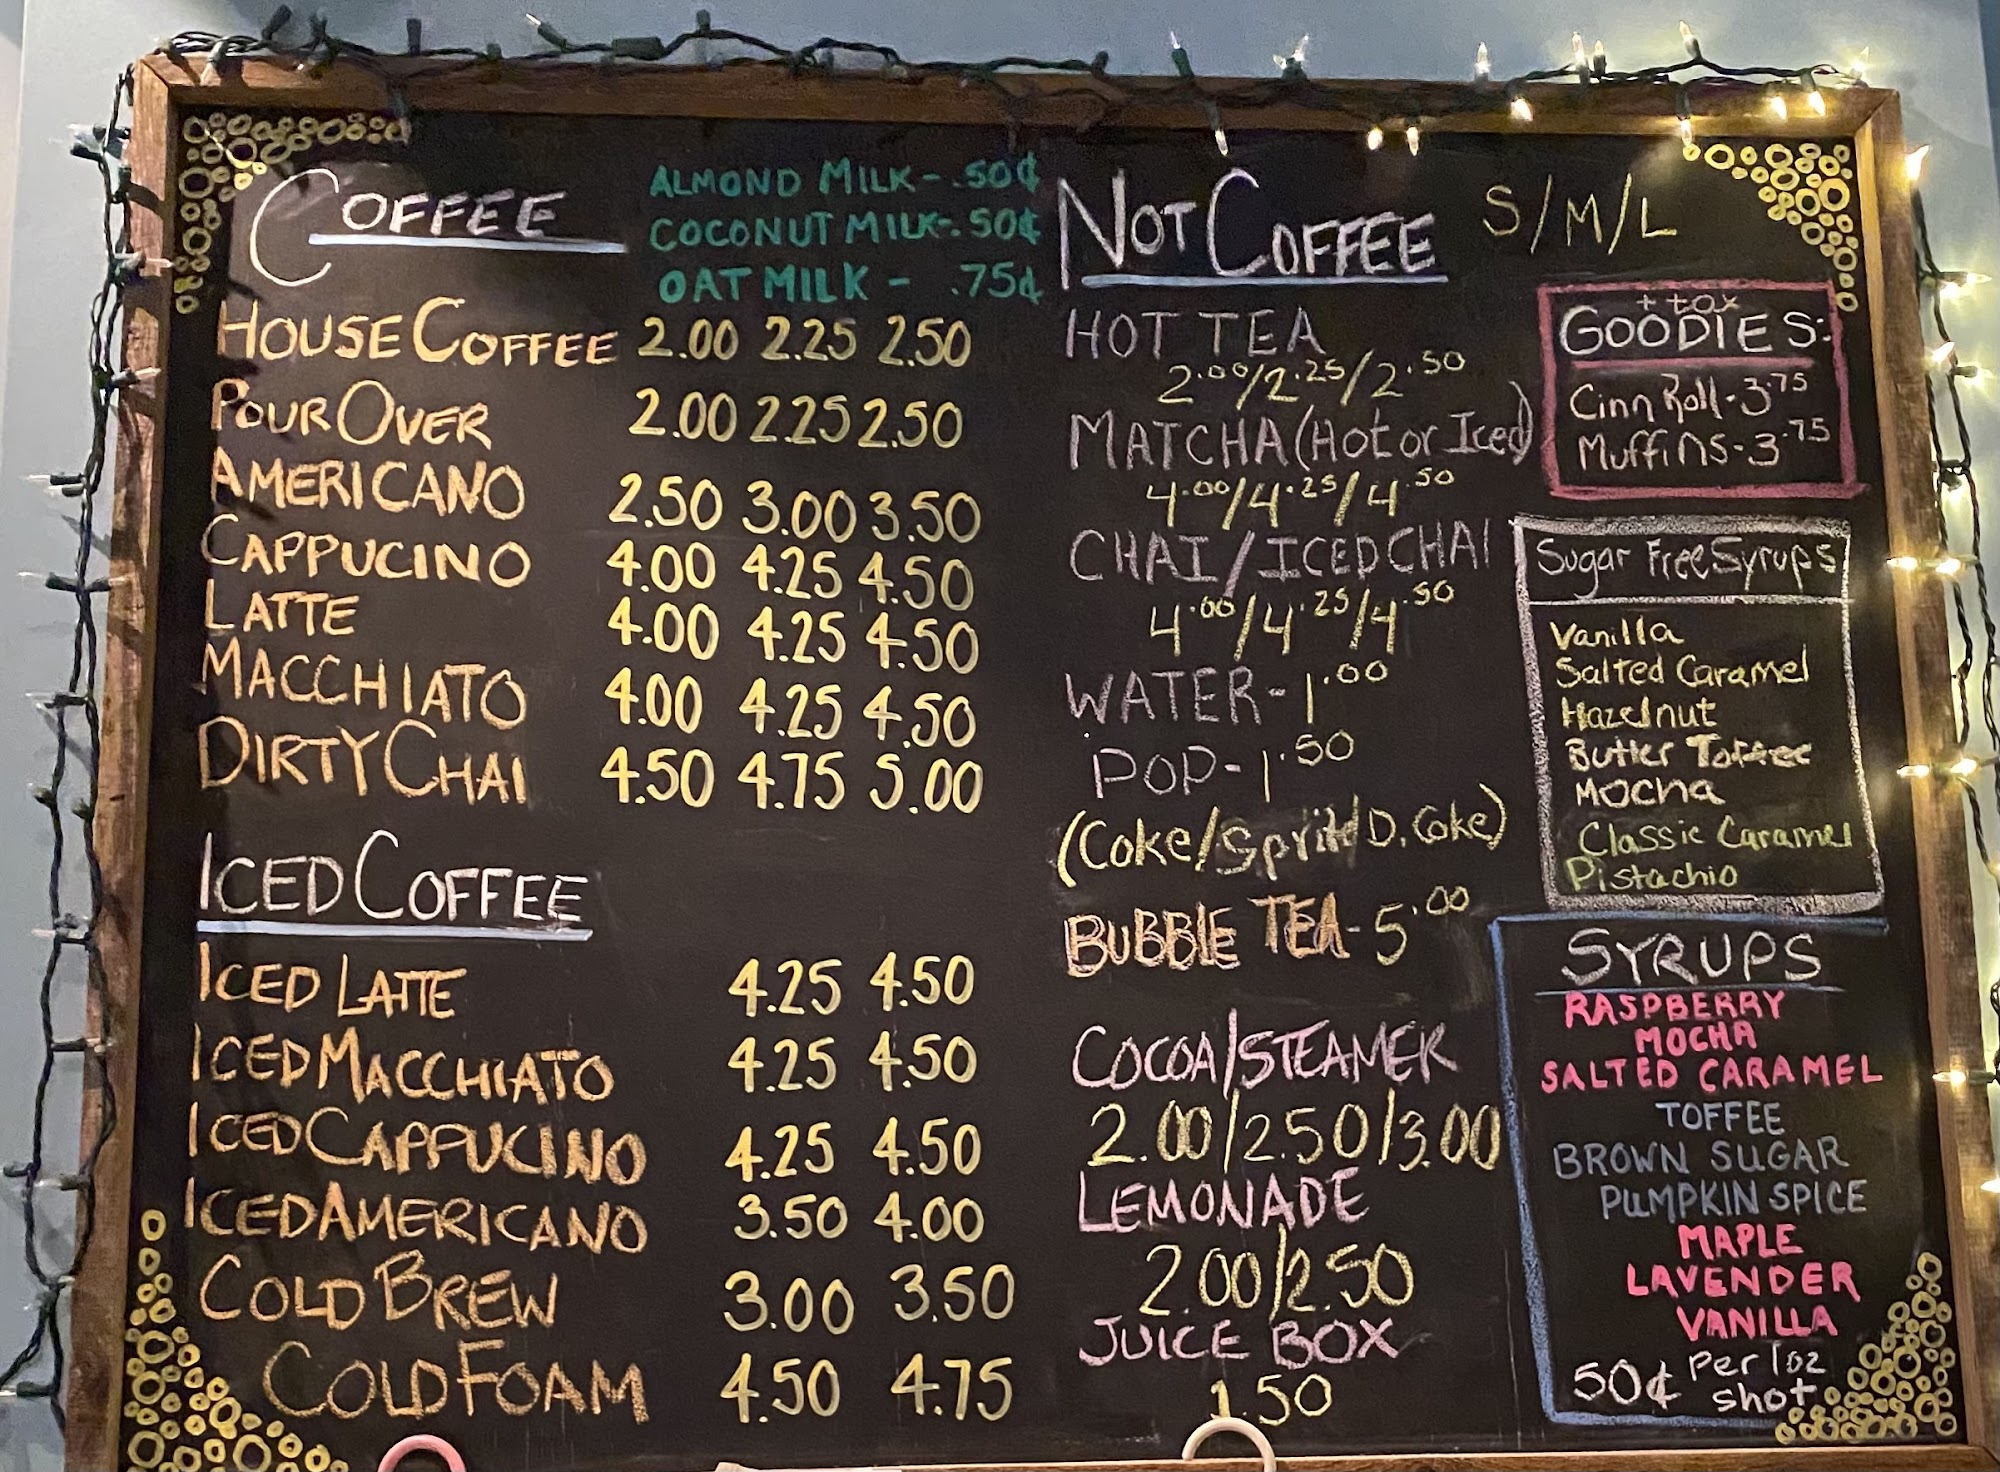 COFFEE
ALMOND MILK - .50¢
COCONUT MILK - .50¢
OAT MILK - .75¢
HOUSE COFFEE 2.00 2.25 2.50
POUR OVER 2.00 2.25 2.50
AMERICANO 2.50 3.00 3.50
CAPPUCINO 4.00 4.25 4.50
LATTE 4.00 4.25 4.50
MACCHIATO 4.00 4.25 4.50
DIRTY CHAI 4.50 4.75 5.00
ICED COFFEE
ICED LATTE 4.25 4.50
ICED MACCHIATO 4.25 4.50
ICED CAPPUCINO 4.25 4.50
ICED AMERICANO 3.50 4.00
COLD BREW 3.00 3.50
COLD FOAM 4.50 4.75
NOT COFFEE S/M/L
HOT TEA
2.00/2.25/2.50
MATCHA (Hot or Iced)
4.00/4.25/4.50
CHAI/ICED CHAI
4.00/4.25/4.50
WATER - 1.00
POP - 1.50
(Coke/Sprite/D. Coke)
BUBBLE TEA - 5.00
COCOA/STEAMER
2.00/2.50/3.00
LEMONADE
2.00/2.50
JUICE BOX
1.50
+ tax
GOODIES:
Cinn Roll - 3.75
Muffins - 3.75
Sugar Free Syrups
Vanilla
Salted Caramel
Hazelnut
Butter Toffee
Mocha
Classic Caramel
Pistachio
SYRUPS
RASPBERRY
MOCHA
SALTED CARAMEL
TOFFEE
BROWN SUGAR
PUMPKIN SPICE
MAPLE
LAVENDER
VANILLA
50¢ per 1oz
shot